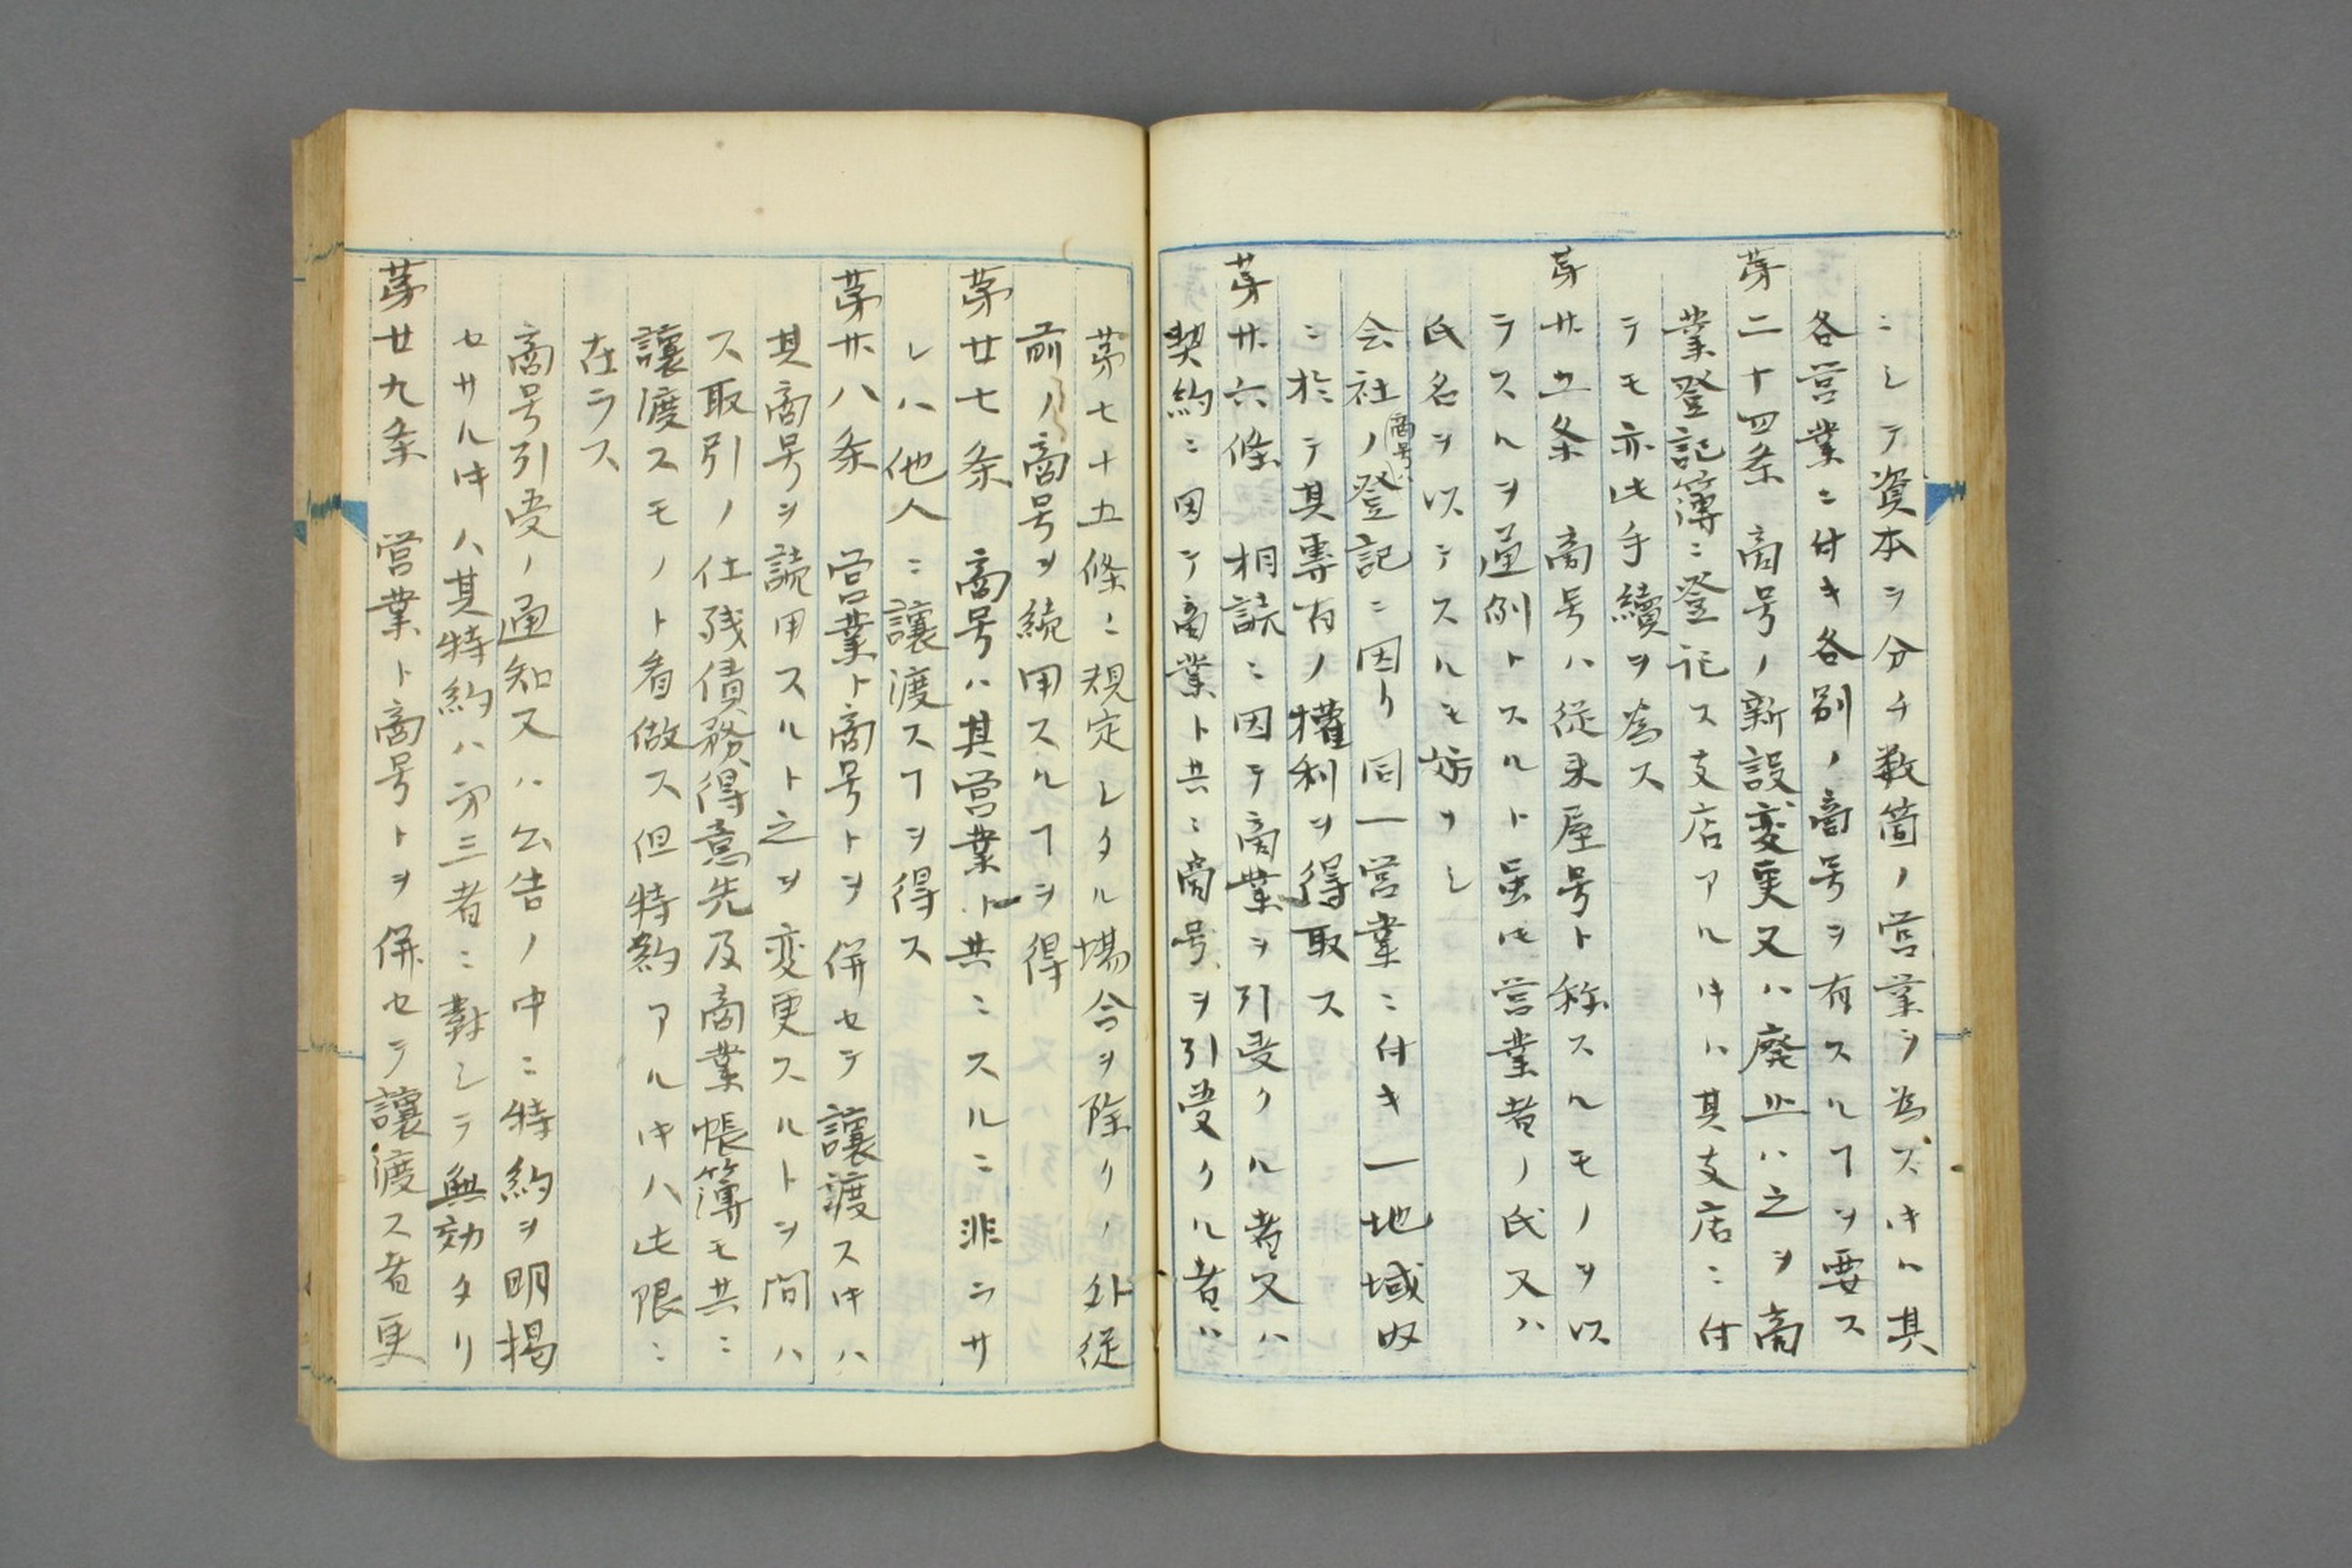 ニシテ資本ヲ分チ数箇ノ営業ヲ為スキハ其
各営業ニ付キ各別ノ商号ヲ有スルヿヲ要ス
苐二十四条　商号ノ新設変更又ハ廃止ハ之ヲ商
業登記簿ニ登記ス支店アルキハ其支店ニ付
テモ亦此手續ヲ為ス
苐廿五条　商号ハ従来屋号ト称スルモノヲ以
テスルヲ通例トスルト虽𪜈営業者ノ氏又ハ
氏名ヲ以テスルモ妨ケナシ
会社ノ商号ハ登記ニ因リ同一営業ニ付キ一地域内
ニ於テ其專有ノ權利ヲ得取ス
苐廿六條　相読ニ因テ商業ヲ引受クル者又ハ
契約ニ因テ商業ト共ニ商号ヲ引受クル者ハ
苐七十五條ニ規定シタル場合ヲ除クノ外従
前ノ商号ヲ続用スルヿヲ得
苐廿七条　商号ハ其営業ト共ニスルニ非ラサ
レハ他人ニ讓渡スヿヲ得ス
苐廿八条　営業ト商号トヲ併セテ讓渡スキハ
其商号ヲ読用スルト之ヲ変更スルトヲ問ハ
ス取引ノ仕残債務得意先及商業帳簿モ共ニ
讓渡スモノト看做ス但特約アルキハ此限ニ
在ラス
商号引受ノ通知又ハ公告ノ中ニ特約ヲ明掲
セサルキハ其特約ハ苐三者ニ對シテ無効タリ
苐廿九条　営業ト商号トヲ併セテ讓渡ス者更